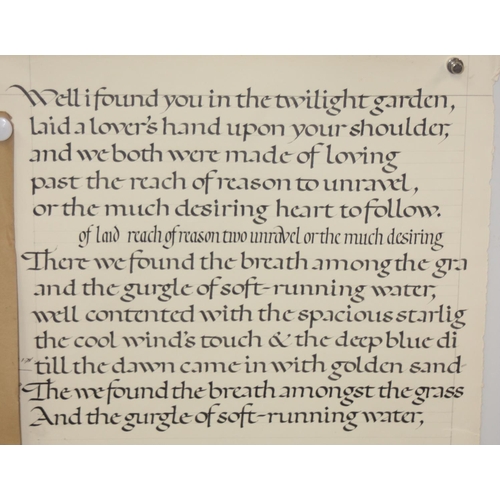 Well i found you in the twilight garden,
laid a lover's hand upon your shoulder,
and we both were made of loving
past the reach of reason to unravel,
or the much desiring heart to follow.
of laid reach of reason two unravel or the much desiring
There we found the breath among the gra
and the gurgle of soft-running water,
well contented with the spacious starlig
the cool wind's touch & the deep blue di
till the dawn came in with golden sand
The we found the breath amongst the grass
And the gurgle of soft-running water,